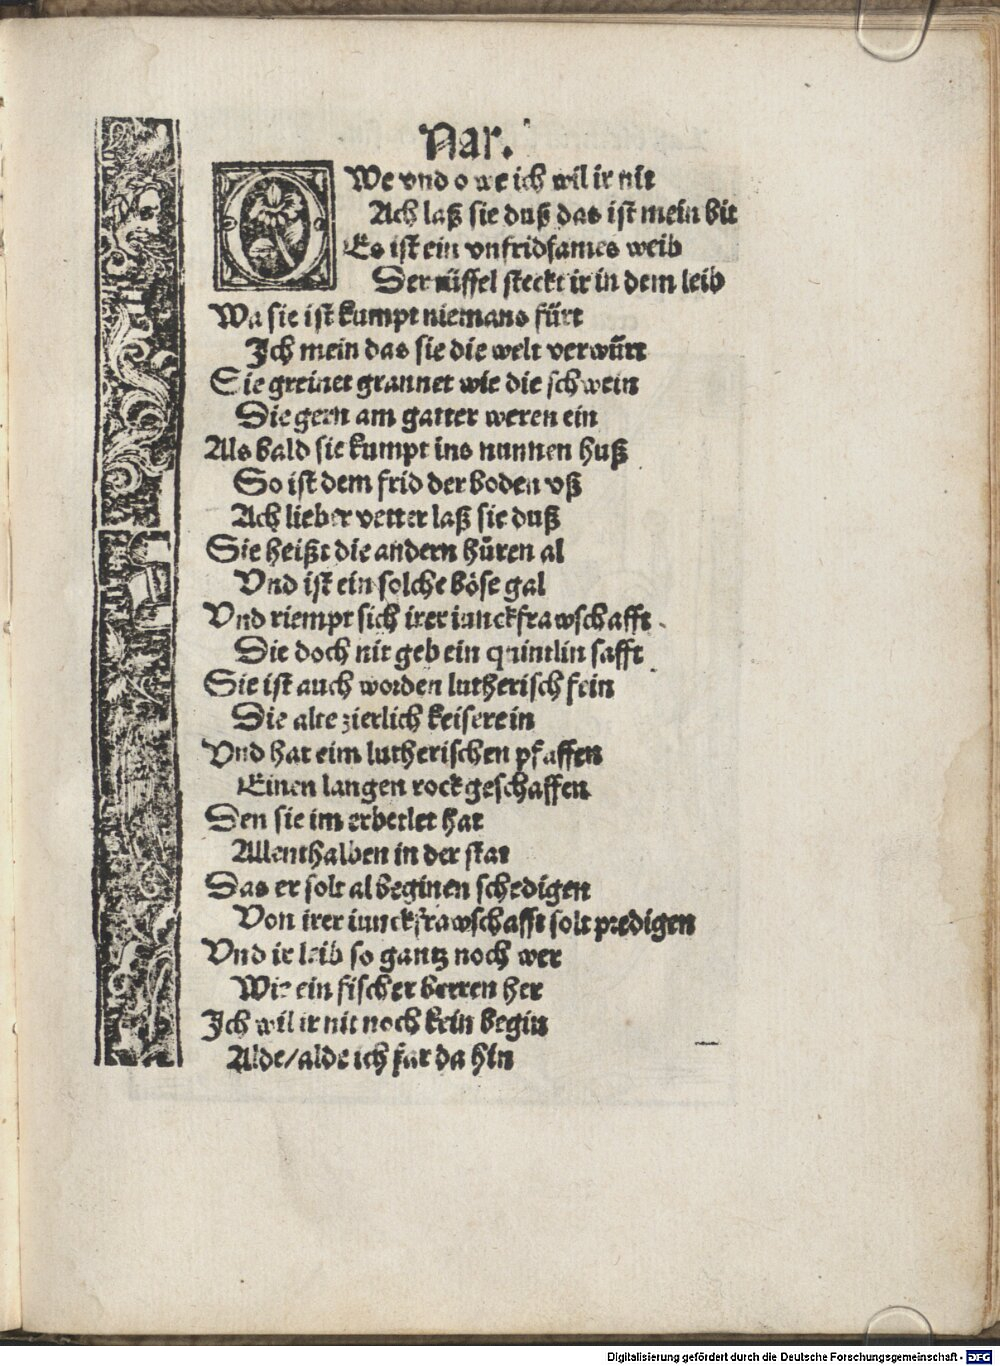 Nar.
OWe vnd o we ich wil ir nit
Ach laß sie duß das ist mein bit
Es ist ein vnfridsames weib
Der rüssel steckt ir in dem leib
Wa sie ist kumpt niemans fürt
Ich mein das sie die welt verwürt
Sie greinet grannet wie die schwein
Die gern am gatter weren ein
Als bald sie kumpt ins nunnen huß
So ist dem frid der boden vß
Ach lieber vetter laß sie duß
Sie heißt die andern hůren al
Vnd ist ein solche böse gal
Vnd riempt sich irer iunckfrawschafft
Die doch nit geb ein quintlin safft
Sie ist auch worden lutherisch fein
Die alte zierlich keiserein
Vnd hat eim lutherischen pfaffen
Einen langen rock geschaffen
Den sie im erbetlet hat
Allenthalben in der stat
Das er solt al beginen schedigen
Von irer iunckfrawschafft solt predigen
Vnd ir leib so gantz noch wer
Wie ein fischer berren her
Ich wil ir nit noch kein begin
Alde/alde ich far da hin
Digitalisierung gefördert durch die Deutsche Forschungsgemeinschaft - DFG